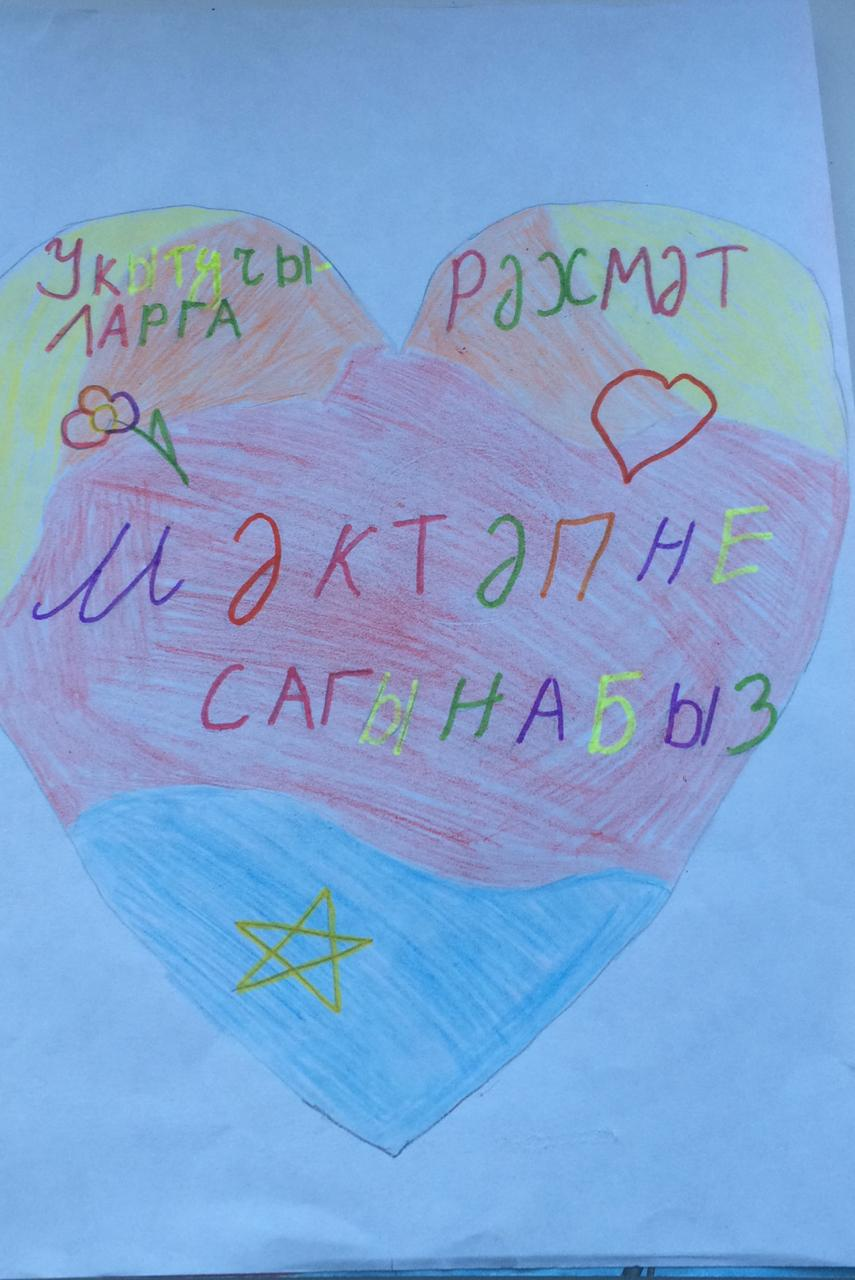 Укытучы-
ЛАРГА
РӘХМӘТ
МӘКТӘПНЕ
САГЫНАБЫЗ